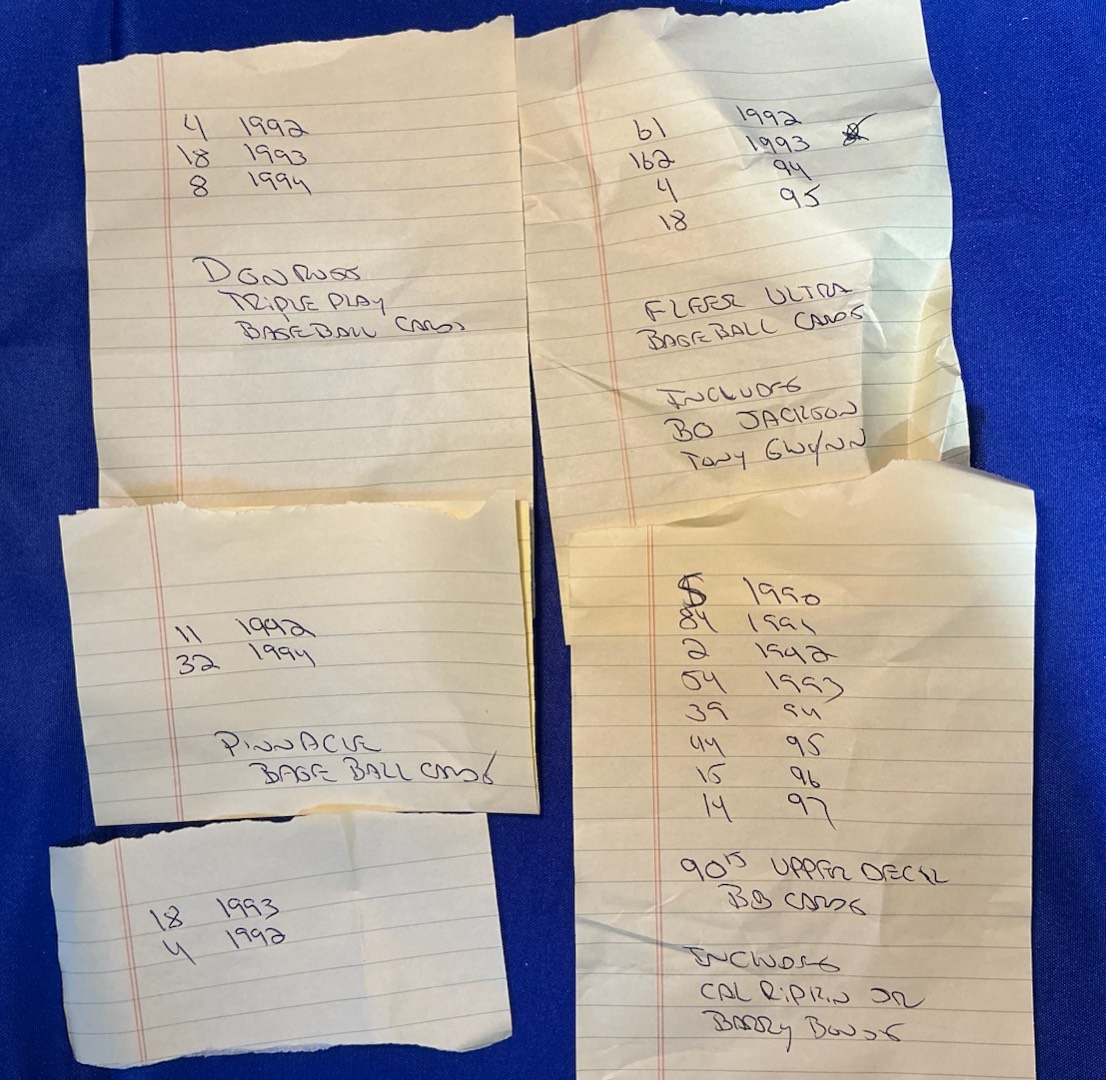 4 1992
18 1993
8 1994
DONRUSS
TRIPLE PLAY
BASEBALL CARDS
61 1992
162 1993
4 94
18 95
FLEER ULTRA
BASEBALL CARDS
INCLUDES
BO JACKSON
TONY GWYNN
11 1992
32 1994
PINNACLE
BASE BALL CARDS
18 1993
4 1992
5 1990
84 1991
2 1992
54 1993
39 94
44 95
15 96
14 97
90'S UPPER DECK
BB CARDS
INCLUDES
CAL RIPKIN JR
BARRY BONDS